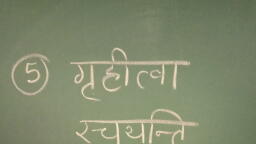 ⑤ गृहीत्वा
रचयन्ति